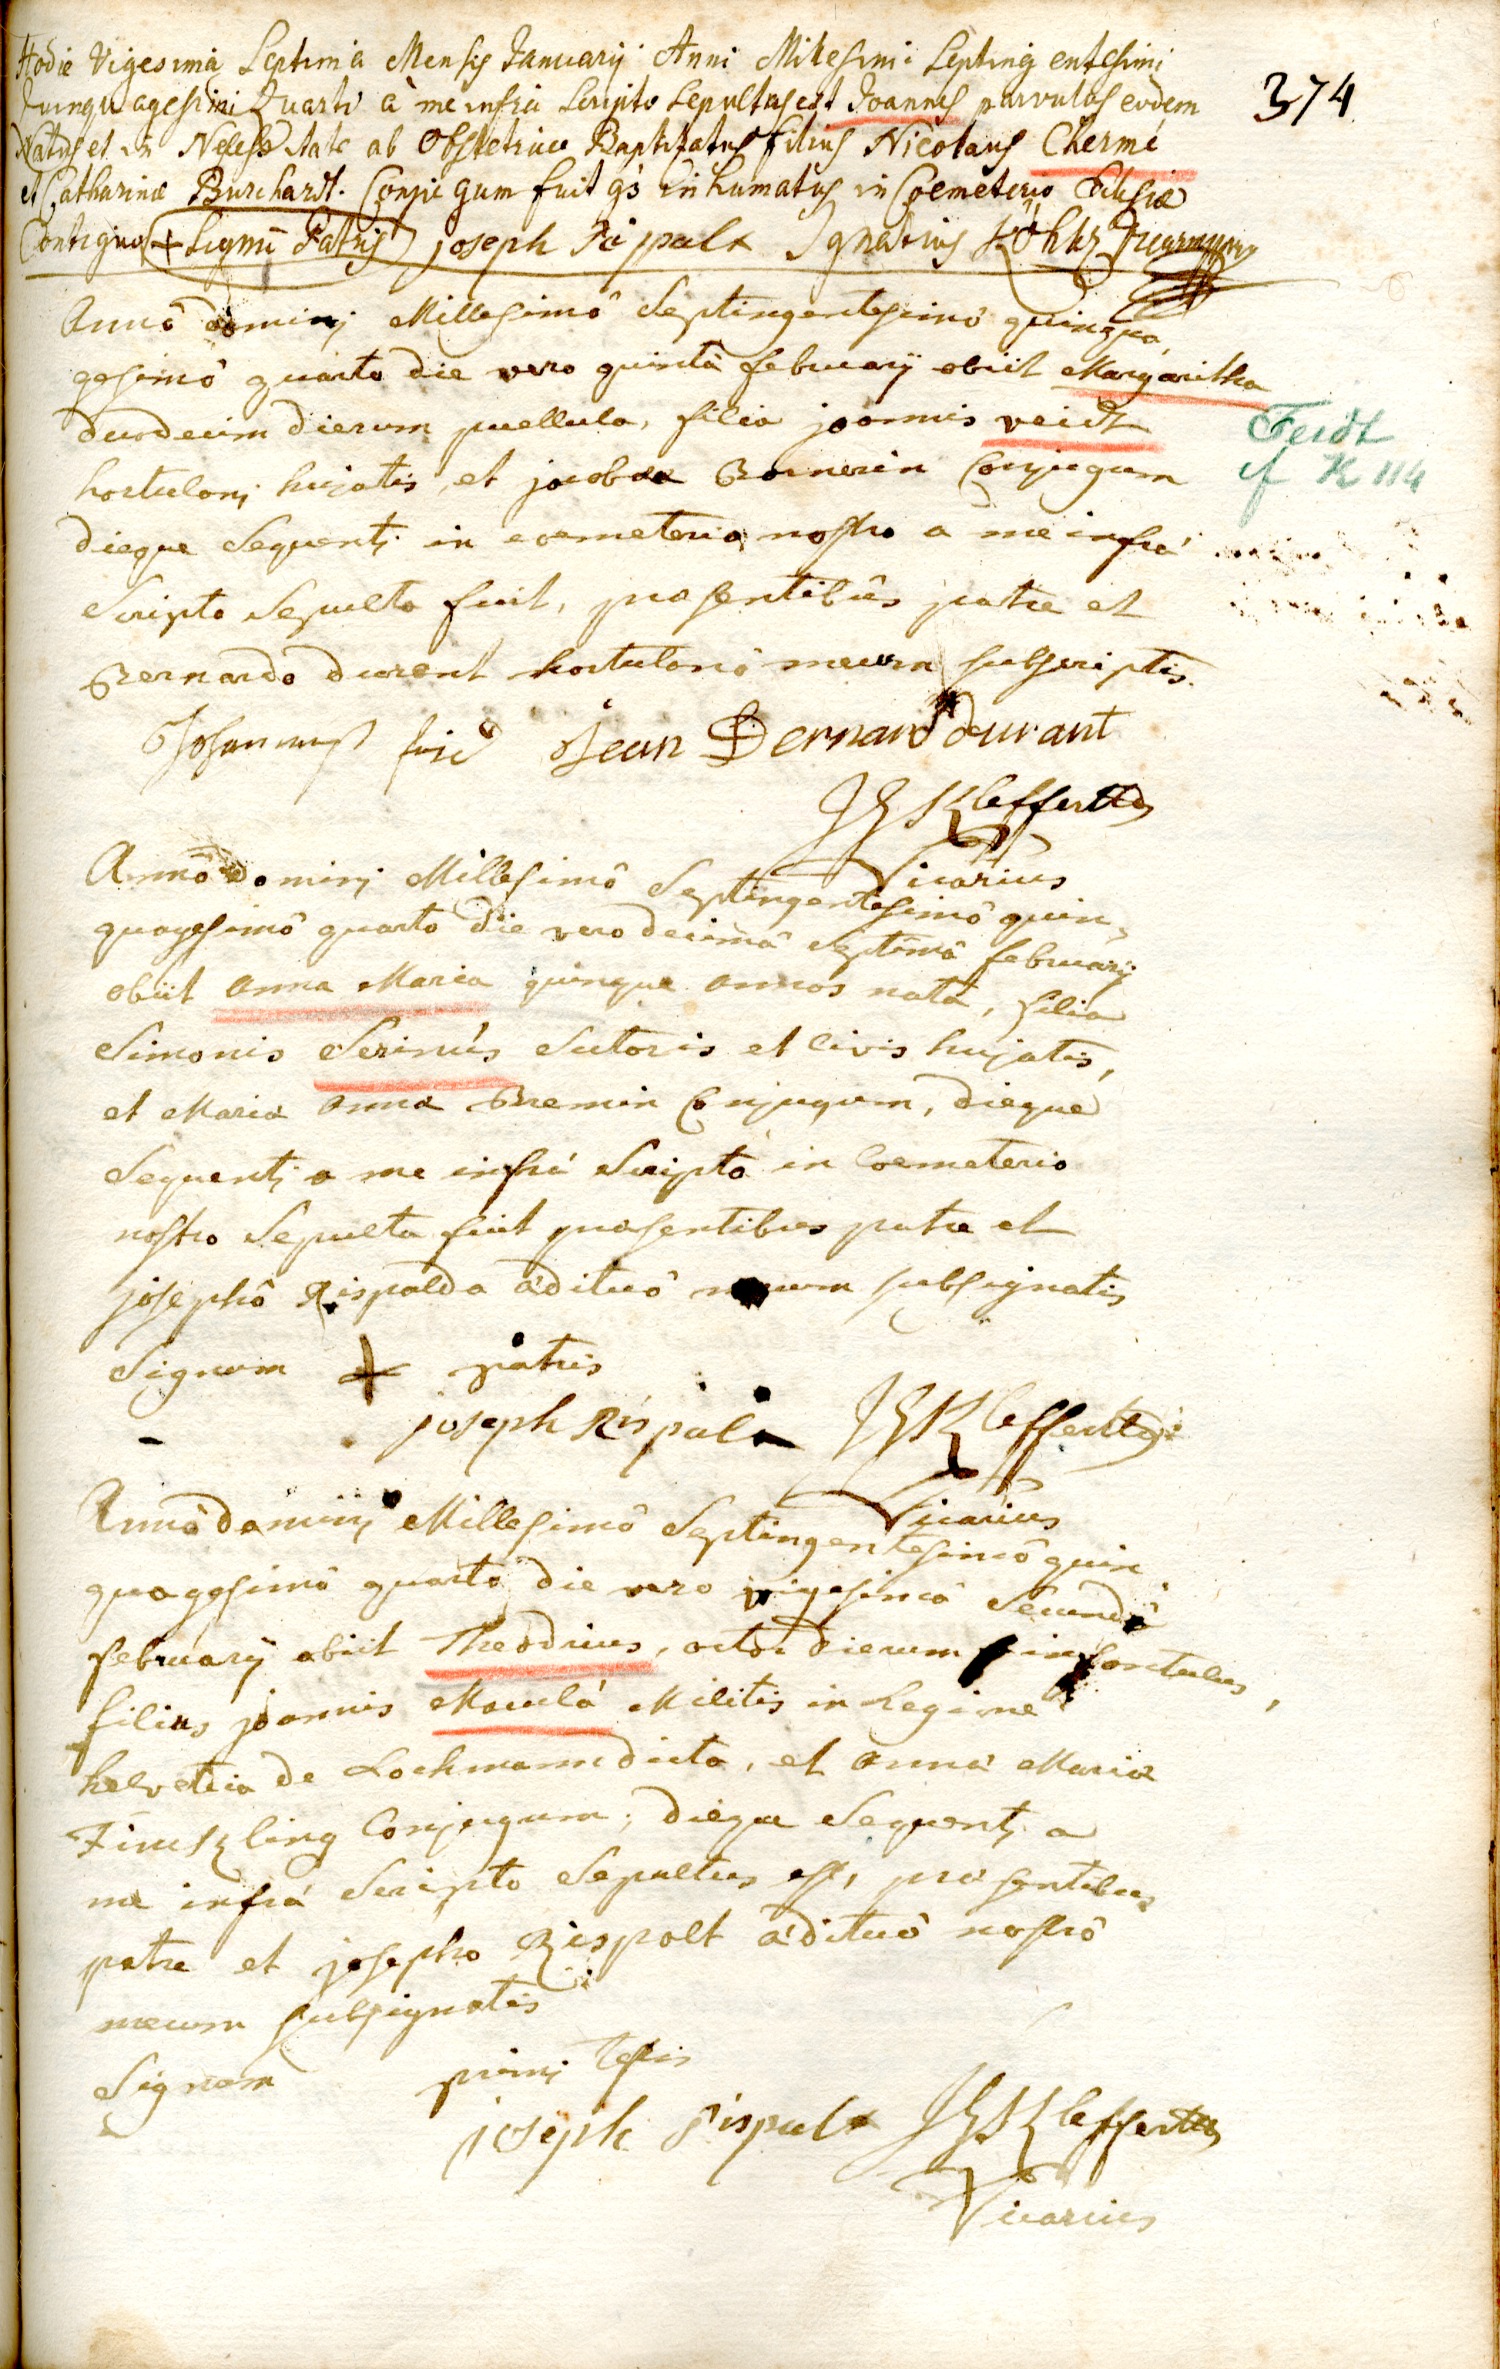 374
Hodie Vigesima Septima Mensis Januarij Anni Milesimi Septingentesimi
Quinquagesimi Quarti à me infra scripto Sepultus est Joannes parvulus eodem
Natus et in Necessitate ab Obstetrice Baptizatus filius Nicolaus Chermé
et Catharinæ Burchardt. Conjugum fuit inhumatus in Coemeterio Eclesiæ
Contiguo + Signū Patris joseph Rispalt Ignatius
Annô dominj Millesimô Septingentesimô quinqua
gesimô quarto die vero quintâ februarij obiit Margaritha
duodecim dierum puellula, filia joannis veidt
hortulanj hujatis, et jacobæ Bornerin Conjugum
dieque Sequentj in coemeterio nostro a me infrá
Scripto Sepulta fuit, præsentibûs patre et
Bernardo durent hortulanô mecum subscriptis.
Feidt
cf K 114
Johannes feid Jean Bernard durant
Kleffert
Vicarius
Annô dominj Millesimô Septingentesimô quin
quagesimô quarto die vero decimâ septimâ februarij
obiit anna Maria quinque annos nata, filia
Simonis Serinús Sutoris et Civis hujatis,
et Mariæ annæ Bremin Conjugum, dieque
Sequentj a me infrá Scripto in Coemeterio
nostro Sepulta fuit præsentibus patre et
josephô Rispalda ædituô mecum subsignatis
Signum + patris
joseph Rispalt Kleffert
Vicarius
Annô dominj Millesimô Septingentesimô quin
quagesimô quarto die vero vigesimâ Secundâ
februarij obiit Theodrius, octo dierum infantulus,
filius joannis Maculá Militis in Legione
helvetica de Lochmann dicta, et annæ Mariæ
Conjugum, dieque Sequentj a
me infrá Scripto Sepultus est, præsentibus
patre et josepho Rispalt ædituô nostrô
mecum subsignatis
Signum primj testis
joseph Rispalt Kleffert
Vicarius